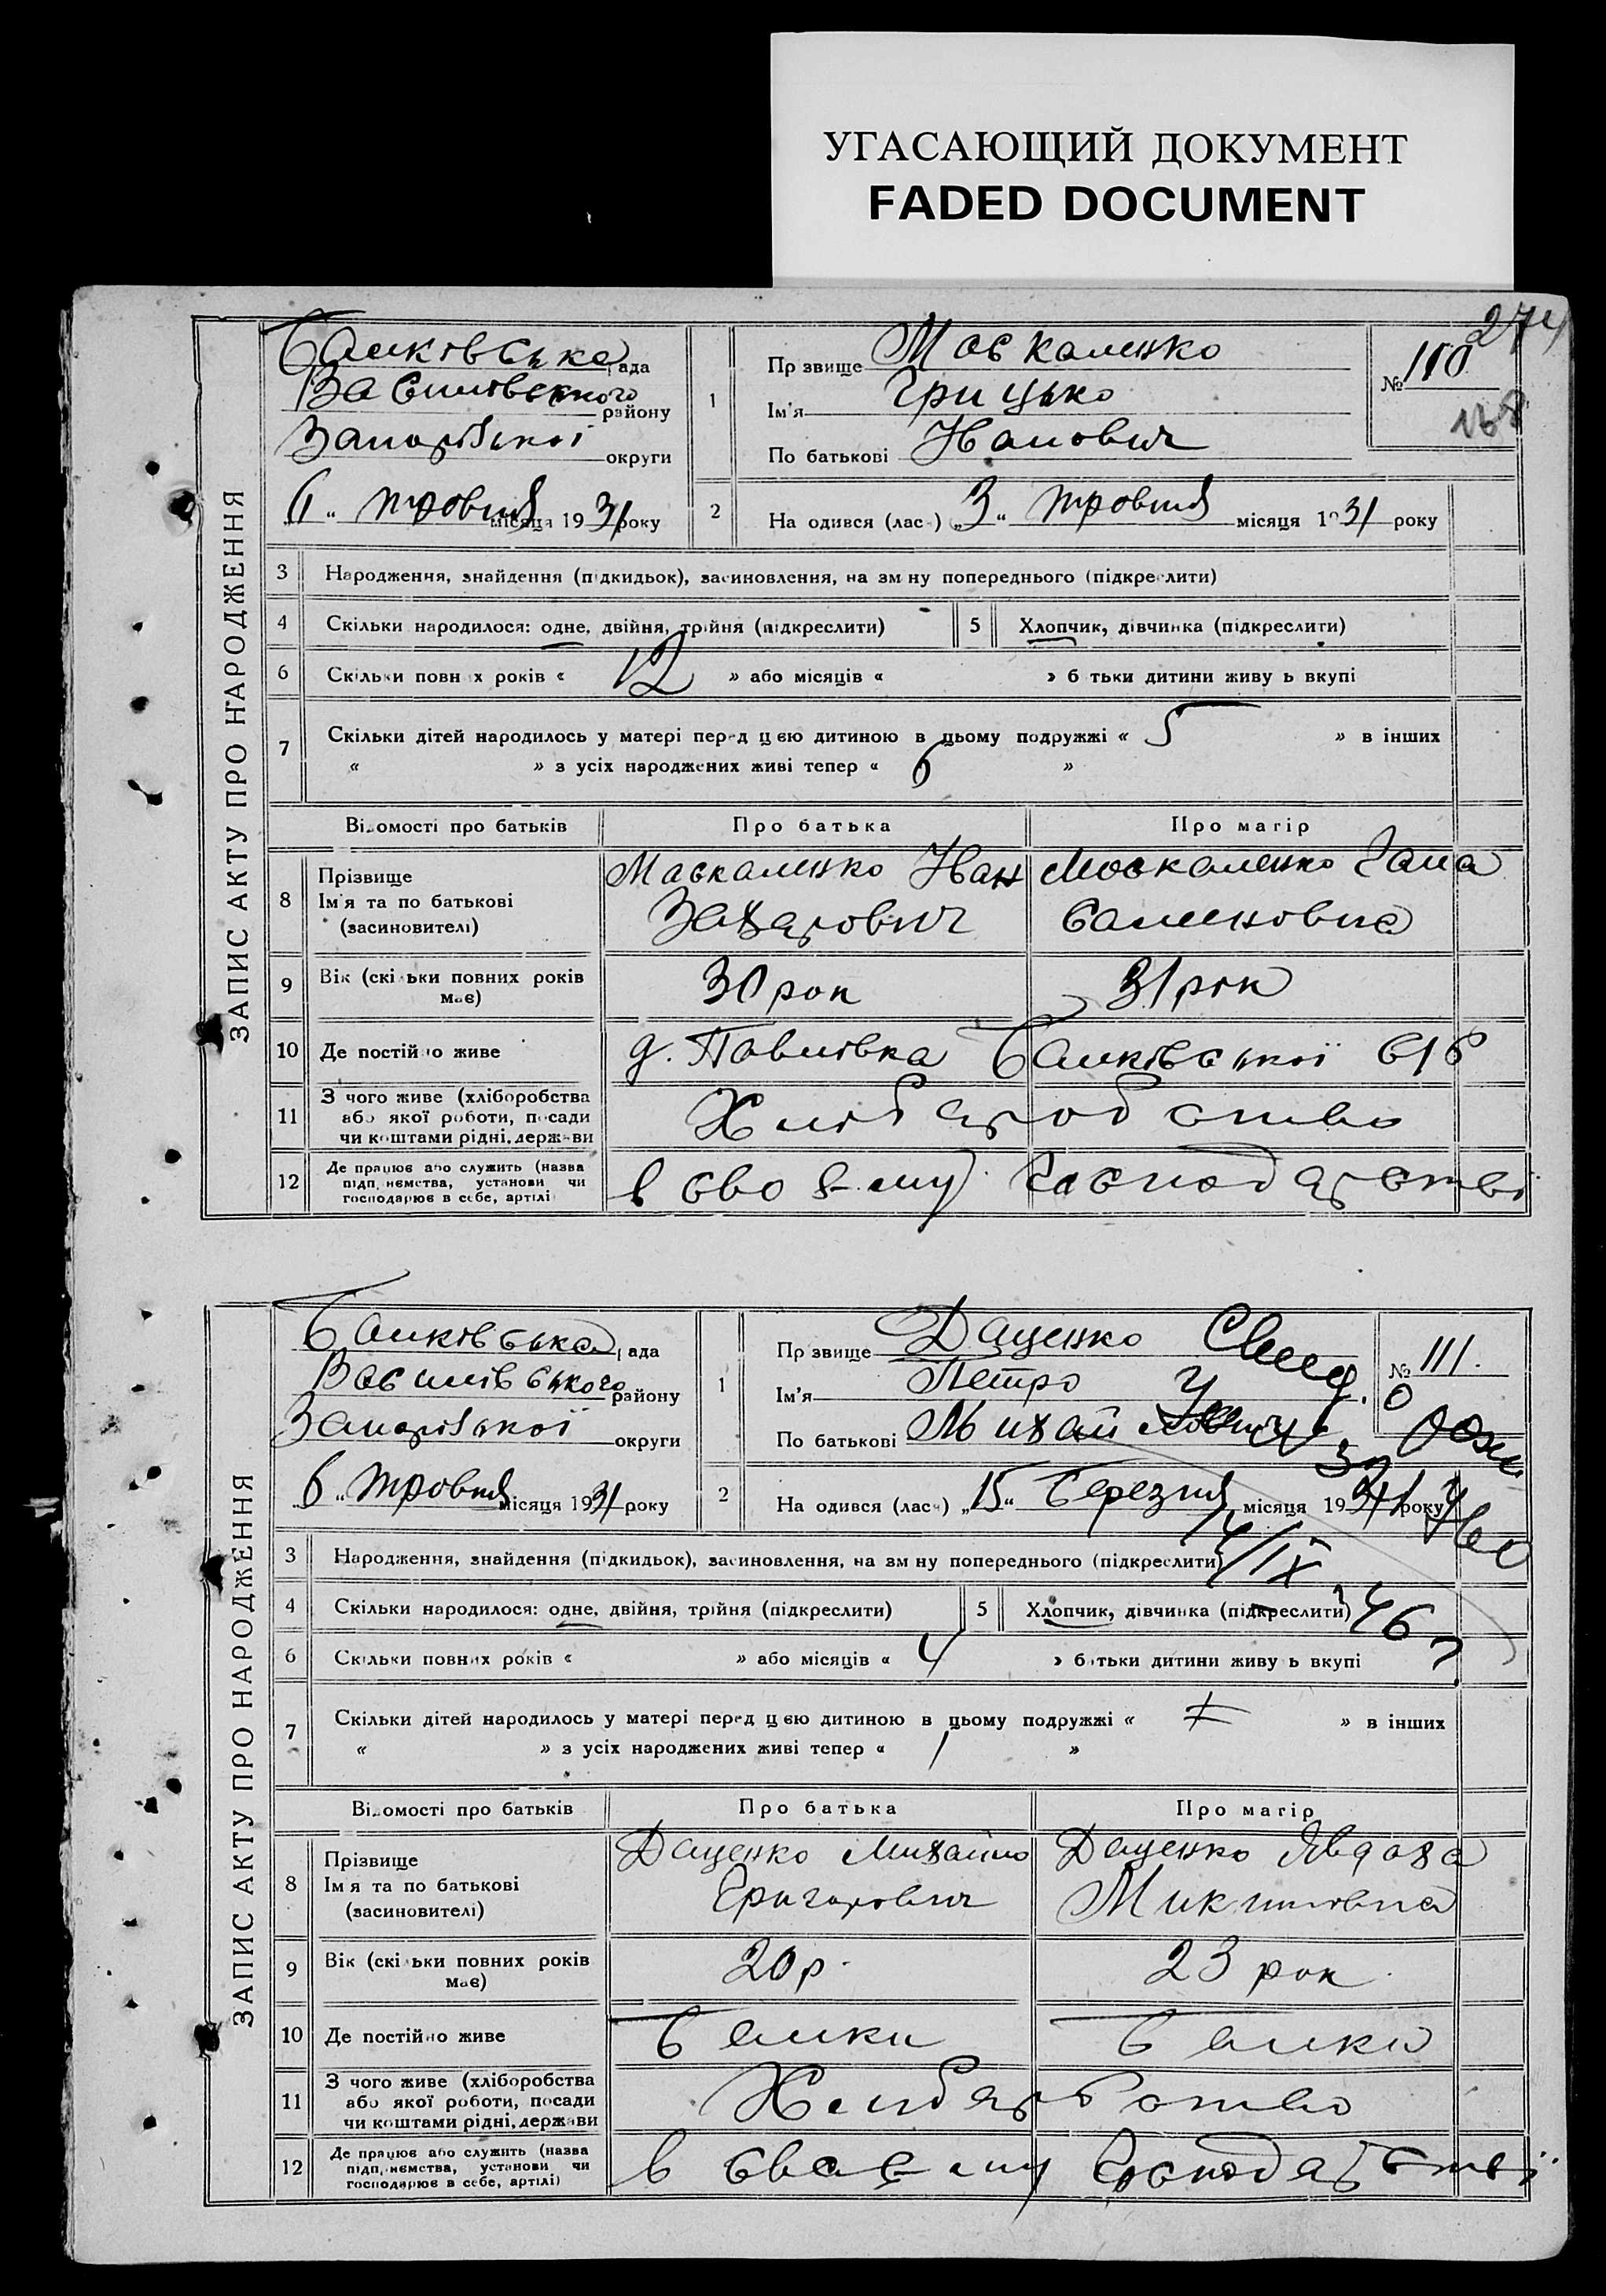 УГАСАЮЩИЙ ДОКУМЕНТ
FADED DOCUMENT
274
ЗАПИС АКТУ ПРО НАРОДЖЕННЯ
Балківська рада
Василівського району
Запорізької округи
6 " травня місяця 1931 року
1
Пр звище Москаленко
Ім'я Грицько
По батькові Іванович
№ 110
138
2
На одився (лас ) „3" травня місяця 1931 року
3 Народження, знайдення (підкидьок), засиновлення, на зм ну попереднього (підкреслити)
4 Скільки народилося: одне, двійня, трійня (підкреслити)
5 Хлопчик, дівчинка (підкреслити)
6 Скільки повних років « 12 » або місяців « » б тьки дитини живу ь вкупі
7 Скільки дітей народилось у матері перед цею дитиною в цьому подружжі « 5 » в інших
« » з усіх народжених живі тепер « 6 »
Відомості про батьків Про батька Про матір
8 Прізвище
Ім'я та по батькові
(засиновителі)
Москаленко Іван
Захарович
Москаленко Гана
Саменовна
9 Вік (скільки повних років
має)
30 рок
31 рок
10 Де постійно живе
д. Павлівка Балківської с/р
11 З чого живе (хліборобства
або якої роботи, посади
чи коштами рідні, держави
Хлібаробство
12 Де працює або служить (назва
підп, иємства, установи чи
господарює в себе, артілі
в своєму господарстві
ЗАПИС АКТУ ПРО НАРОДЖЕННЯ
Балківська рада
Василівського району
Запорізької округи
„6" травня місяця 1931 року
1
Пр звище Даценко
Ім'я Петро
По батькові Михайлович
№ 111.
2
На одився (лас ) „15" березня місяця 1931 року
4/IX
3 Народження, знайдення (підкидьок), засиновлення, на зм ну попереднього (підкреслити)
4 Скільки народилося: одне, двійня, трійня (підкреслити)
5 Хлопчик, дівчинка (підкреслити)
46
6 Скільки повних років « » або місяців « 4 » батьки дитини живу ь вкупі
7 Скільки дітей народилось у матері перед цею дитиною в цьому подружжі « » в інших
« » з усіх народжених живі тепер « 1 »
Відомості про батьків Про батька Про матір
8 Прізвище
Ім я та по батькові
(засиновителі)
Даценко Михайло
Григорович
Даценко Явдоха
Микитовна
9 Вік (скільки повних років
має)
20 р.
23 рок
10 Де постійно живе
Балки
Балки
11 З чого живе (хліборобства
або якої роботи, посади
чи коштами рідні, держави
Хлібаробство
12 Де працює або служить (назва
підп, иємства, установи чи
господарює в себе, артілі)
в своєму господарстві